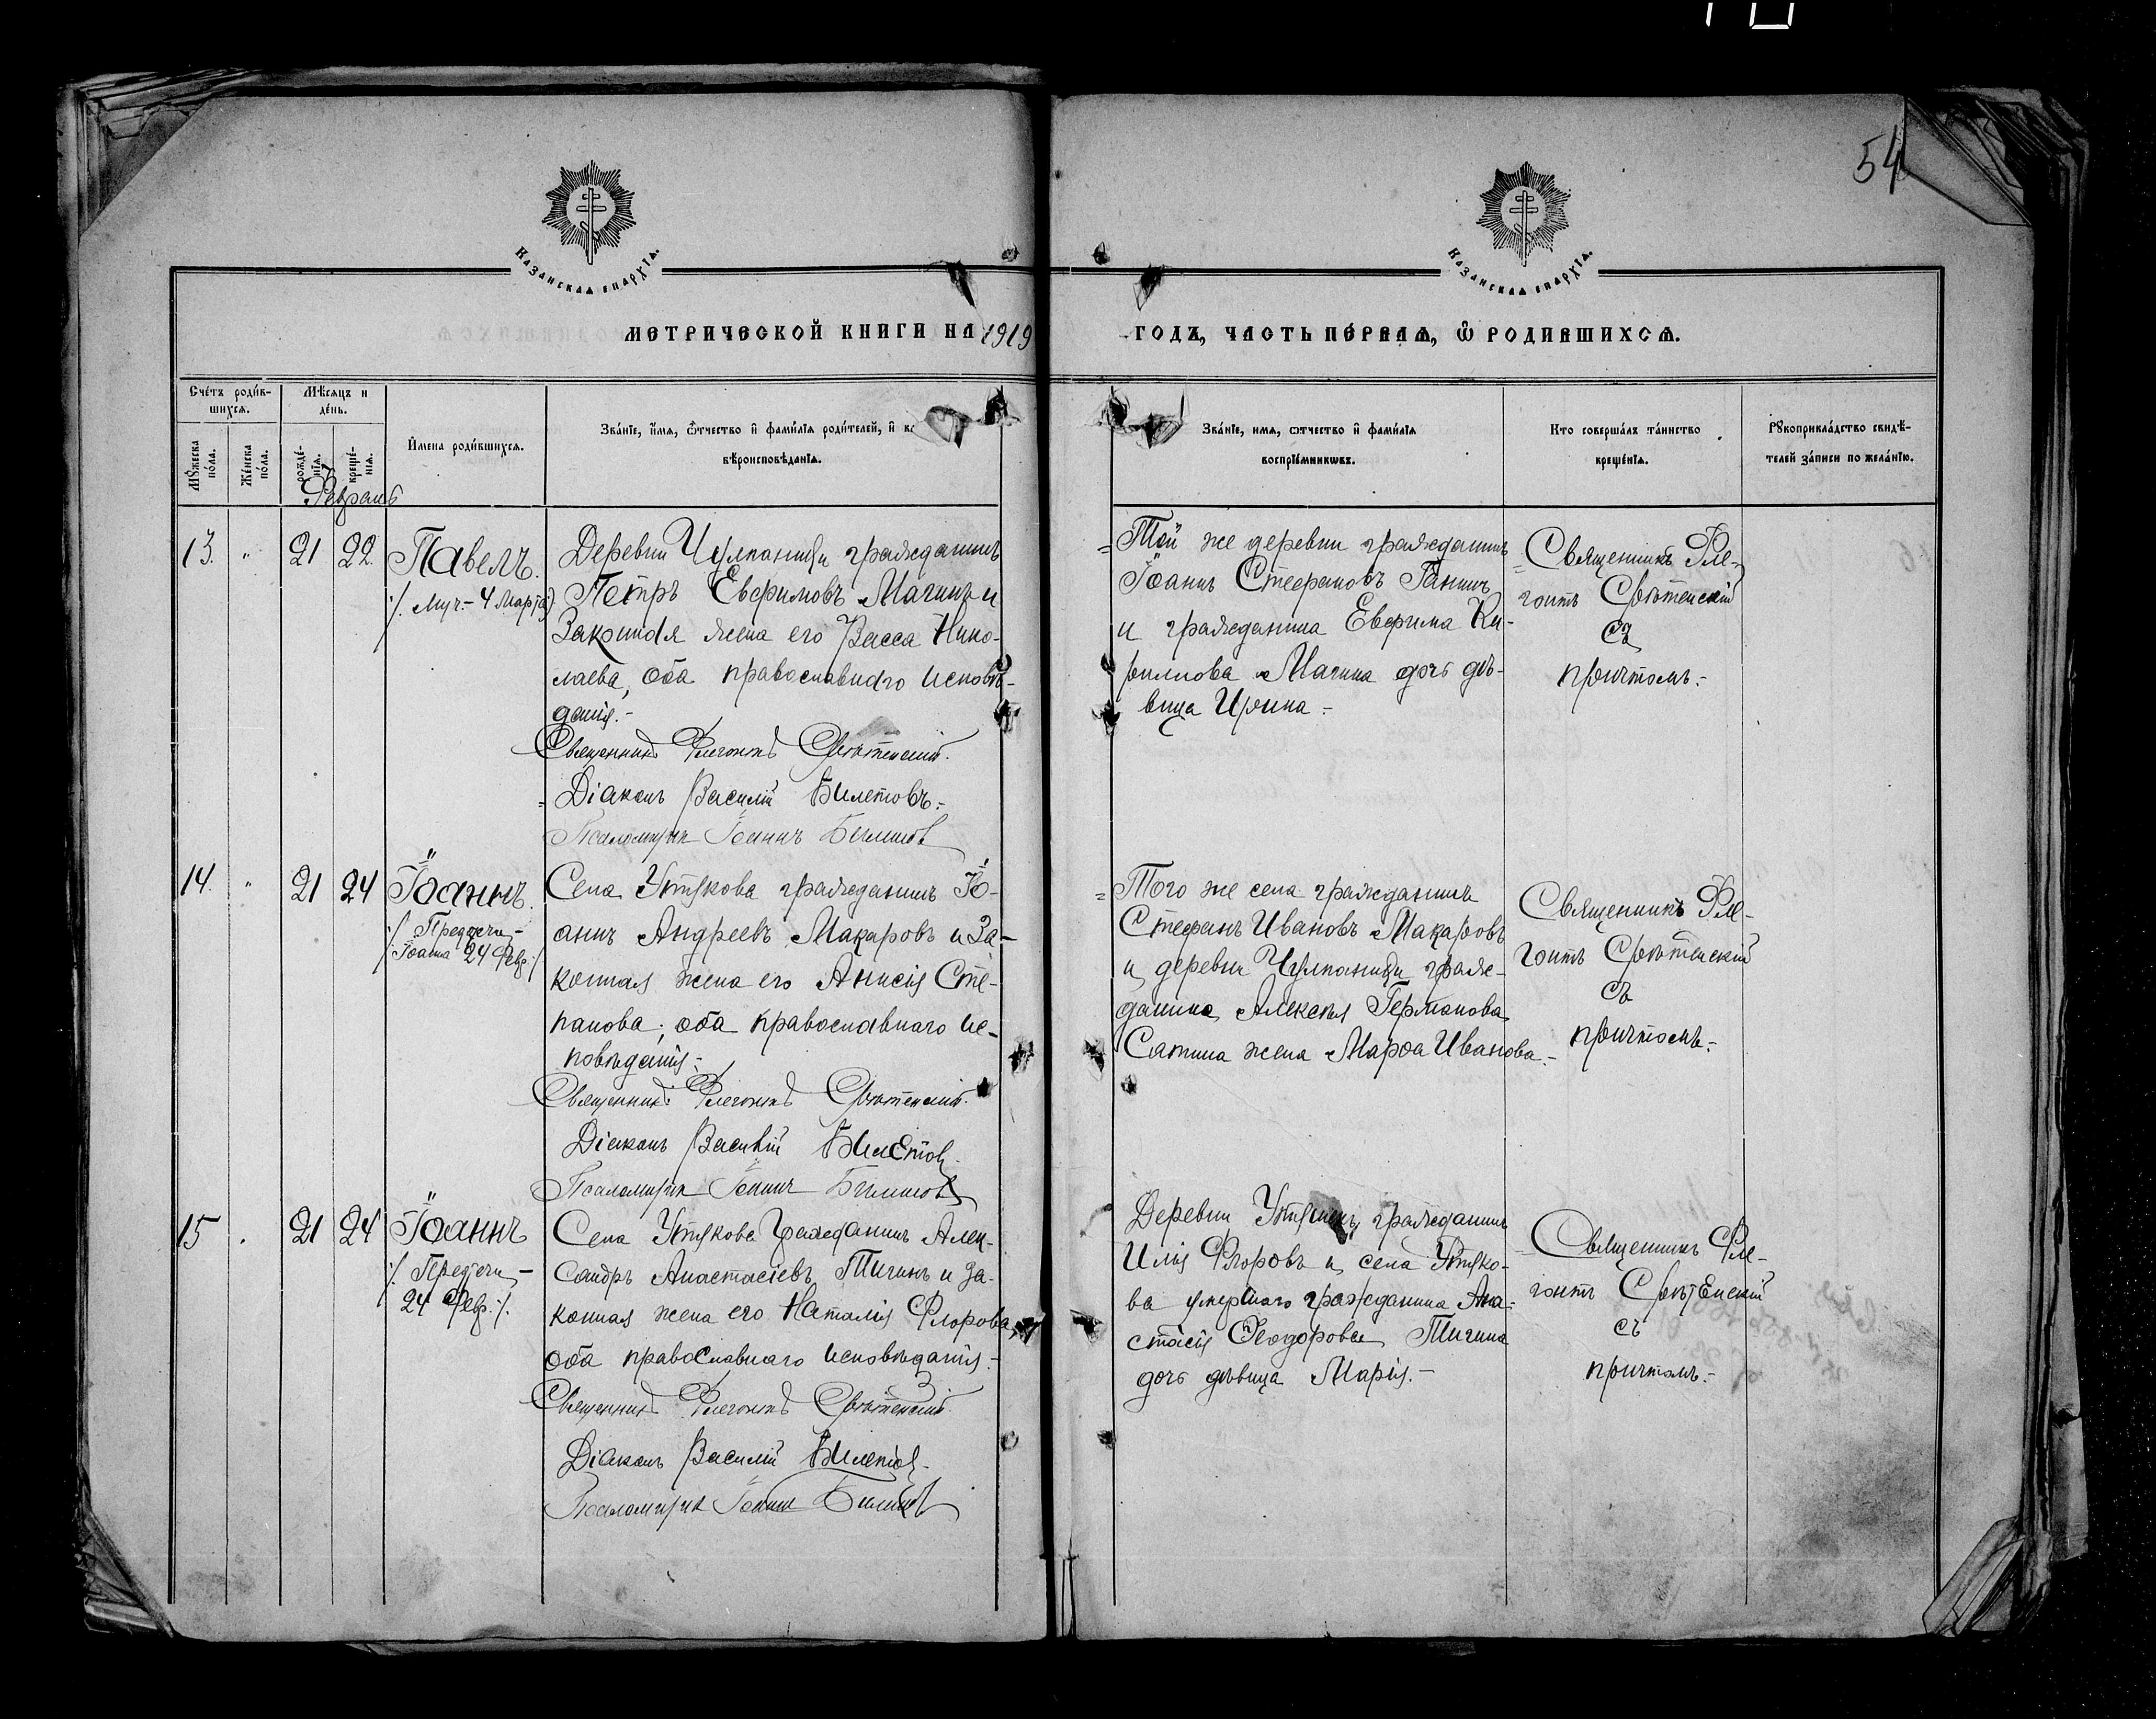 54
КАЗАНСКАЯ ЕПАРХІЯ.
КАЗАНСКАЯ ЕПАРХІЯ.
МЕТРИЧЕСКОЙ КНИГИ НА 1919 ГОДЪ, ЧАСТЬ ПЕРВАЯ, Ѡ РОДИВШИХСЯ.
Счетъ родив-
шихся.
Мꙋжеска пола.
Женска пола.
Мѣсяцъ и
день.
рожде-
нія.
креще-
нія.
Имена родившихся.
Званіе, имя, ѿчество и фамилія родителей, и
вѣроисповѣданія.
Званіе, имя, ѿчество и фамилія
воспріемникѡвъ.
Кто совершалъ таинство
крещенія.
Рꙋкоприкладство свидѣ-
телей записи по желанію.
Февраль
13. " 21 22.
Павелъ.
/. Муч. - 4 Марта/
Деревни Чулпанихи гражданинъ
Петръ Евфимовъ Мачинъ и
Законная жена его Васса Нико-
лаева, оба православнаго исповѣ-
данія. -
Священникъ Флегонтъ Срѣтенскій.
Діаконъ Василій Билетовъ. -
Псаломщикъ Іоаннъ
Той же деревни гражданинъ
Іоаннъ Стефановъ Ганинъ
и гражданина Евфима Ки-
риллова Мачина дочь дѣ-
вица Ирина. -
Священникъ Фле-
гонтъ Срѣтенскій
съ
причтомъ. -
14. " 21 24
Іоаннъ.
/. Предтечи -
Іоанна 24 Февр. /
Села Утякова гражданинъ Іо-
аннъ Андреевъ Макаровъ и за-
конная жена его Анисія Сте-
панова; оба православнаго ис-
повѣданія. -
Священникъ Флегонтъ Срѣтенскій.
Діаконъ Василій Билетовъ.
Псаломщикъ Іоаннъ
Того же села гражданинъ
Стефанъ Ивановъ Макаровъ
и деревни Чулпанихи граж-
данина Алексѣя Германова
Сатина жена Марѳа Иванова. -
Священникъ Фле-
гонтъ Срѣтенскій
съ
причтомъ. -
15 . 21 24
Іоаннъ
/. Предтечи -
24 Февр. /.
Села Утякова Гражданинъ Алек-
сандръ Анастасіевъ Тигинъ и за-
конная жена его Наталія Флорова,
оба православнаго исповѣданія. -
Священникъ Флегонтъ Срѣтенскій.
Діаконъ Василій Билетовъ.
Псаломщикъ Іоаннъ
Деревни гражданинъ
Илія Флоровъ и села Утяко-
ва умершаго гражданина Ана-
стасія Ѳеодорова Тигина
дочь дѣвица Марія. -
Священникъ Фле-
гонтъ Срѣтенскій
съ
причтомъ. -